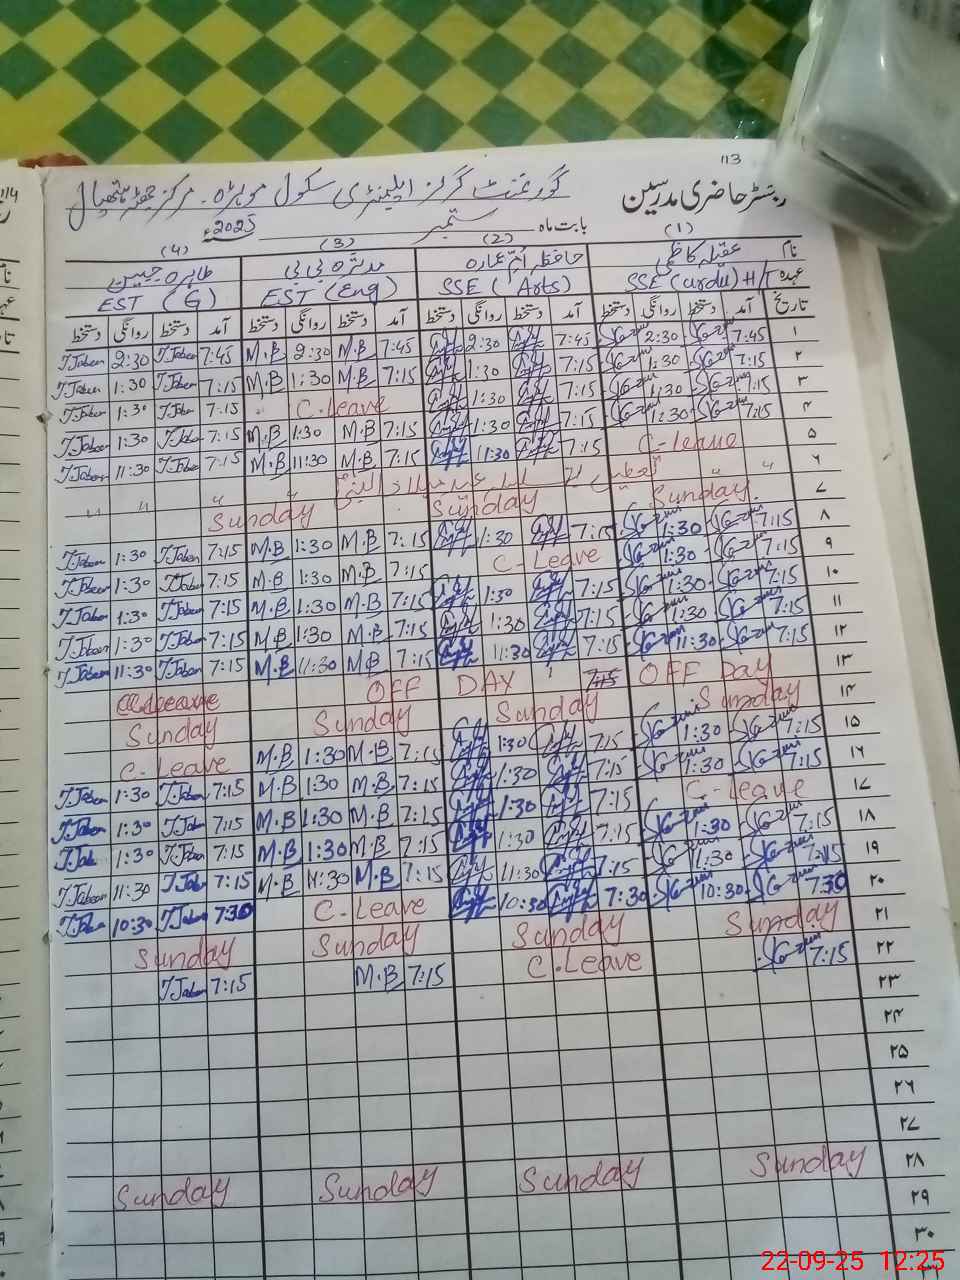 113
رجسٹر حاضری مدرسین گورنمنٹ گرلز ایلیمنٹری سکول موہڑہ۔ مرکز
بابت ماہ ستمبر 2025
(1) (2) (3) (4)
نام عقیلہ کاظمی حافظہ ام عمارہ مدثرہ بی بی طاہرہ جبین
عہدہ SSE (urdu) H/T SSE (Arts) EST (Eng) EST (G)
تاریخ آمد دستخط روانگی دستخط آمد دستخط روانگی دستخط آمد دستخط روانگی دستخط آمد دستخط روانگی دستخط
۱ 7:45 2:30 7:45 2:30 7:45 M.B 2:30 M.B 7:45 T.Jabeen 2:30 T.Jabeen
۲ 7:15 1:30 7:15 1:30 7:15 M.B 1:30 M.B 7:15 T.Jabeen 1:30 T.Jabeen
۳ 7:15 1:30 7:15 1:30 C-leave 7:15 T.Jabe 1:30 T.Jabeen
۴ 7:15 1:30 7:15 1:30 7:15 M.B 1:30 M.B 7:15 T.Jabe 1:30 T.Jabeen
۵ C-leave 7:15 11:30 7:15 M.B 11:30 M.B 7:15 T.Jabe 11:30 T.Jabeen
۶ تعطیل عید میلاد النبیؐ
۷ Sunday Sunday Sunday
۸ 7:15 1:30 7:15 1:30 7:15 M.B 1:30 M.B 7:15 T.Jabeen 1:30 T.Jabeen
۹ 7:15 1:30 C-Leave 7:15 M.B 1:30 M.B 7:15 T.Jabeen 1:30 T.Jabeen
۱۰ 7:15 1:30 7:15 1:30 7:15 M.B 1:30 M.B 7:15 T.Jabeen 1:30 T.Jabeen
۱۱ 7:15 1:30 7:15 1:30 7:15 M.B 1:30 M.B 7:15 T.Jabeen 1:30 T.Jabeen
۱۲ 7:15 11:30 7:15 11:30 7:15 M.B 11:30 M.B 7:15 T.Jabeen 11:30 T.Jabeen
۱۳ OFF Day 7:15 OFF DAY
۱۴ Sunday Sunday Sunday Sunday
۱۵ 7:15 1:30 7:15 1:30 7:15 M.B 1:30 M.B C-Leave
۱۶ 7:15 1:30 7:15 1:30 7:15 M.B 1:30 M.B 7:15 T.Jabeen 1:30 T.Jabeen
۱۷ C-leave 7:15 1:30 7:15 M.B 1:30 M.B 7:15 T.Jabe 1:30 T.Jabeen
۱۸ 7:15 1:30 7:15 1:30 7:15 M.B 1:30 M.B 7:15 T.Jabeen 1:30 T.Jab
۱۹ 7:15 1:30 7:15 11:30 7:15 M.B 11:30 M.B 7:15 T.Jabe 11:30 T.Jabeen
۲۰ 7:30 10:30 7:30 10:30 C-Leave 7:30 T.Jabeen 10:30 T.Jabe
۲۱ Sunday Sunday Sunday Sunday
۲۲ 7:15 C.Leave 7:15 M.B 7:15 T.Jabeen
۲۳
۲۴
۲۵
۲۶
۲۷
۲۸ Sunday Sunday Sunday Sunday
۲۹
۳۰
22-09-25 12:25